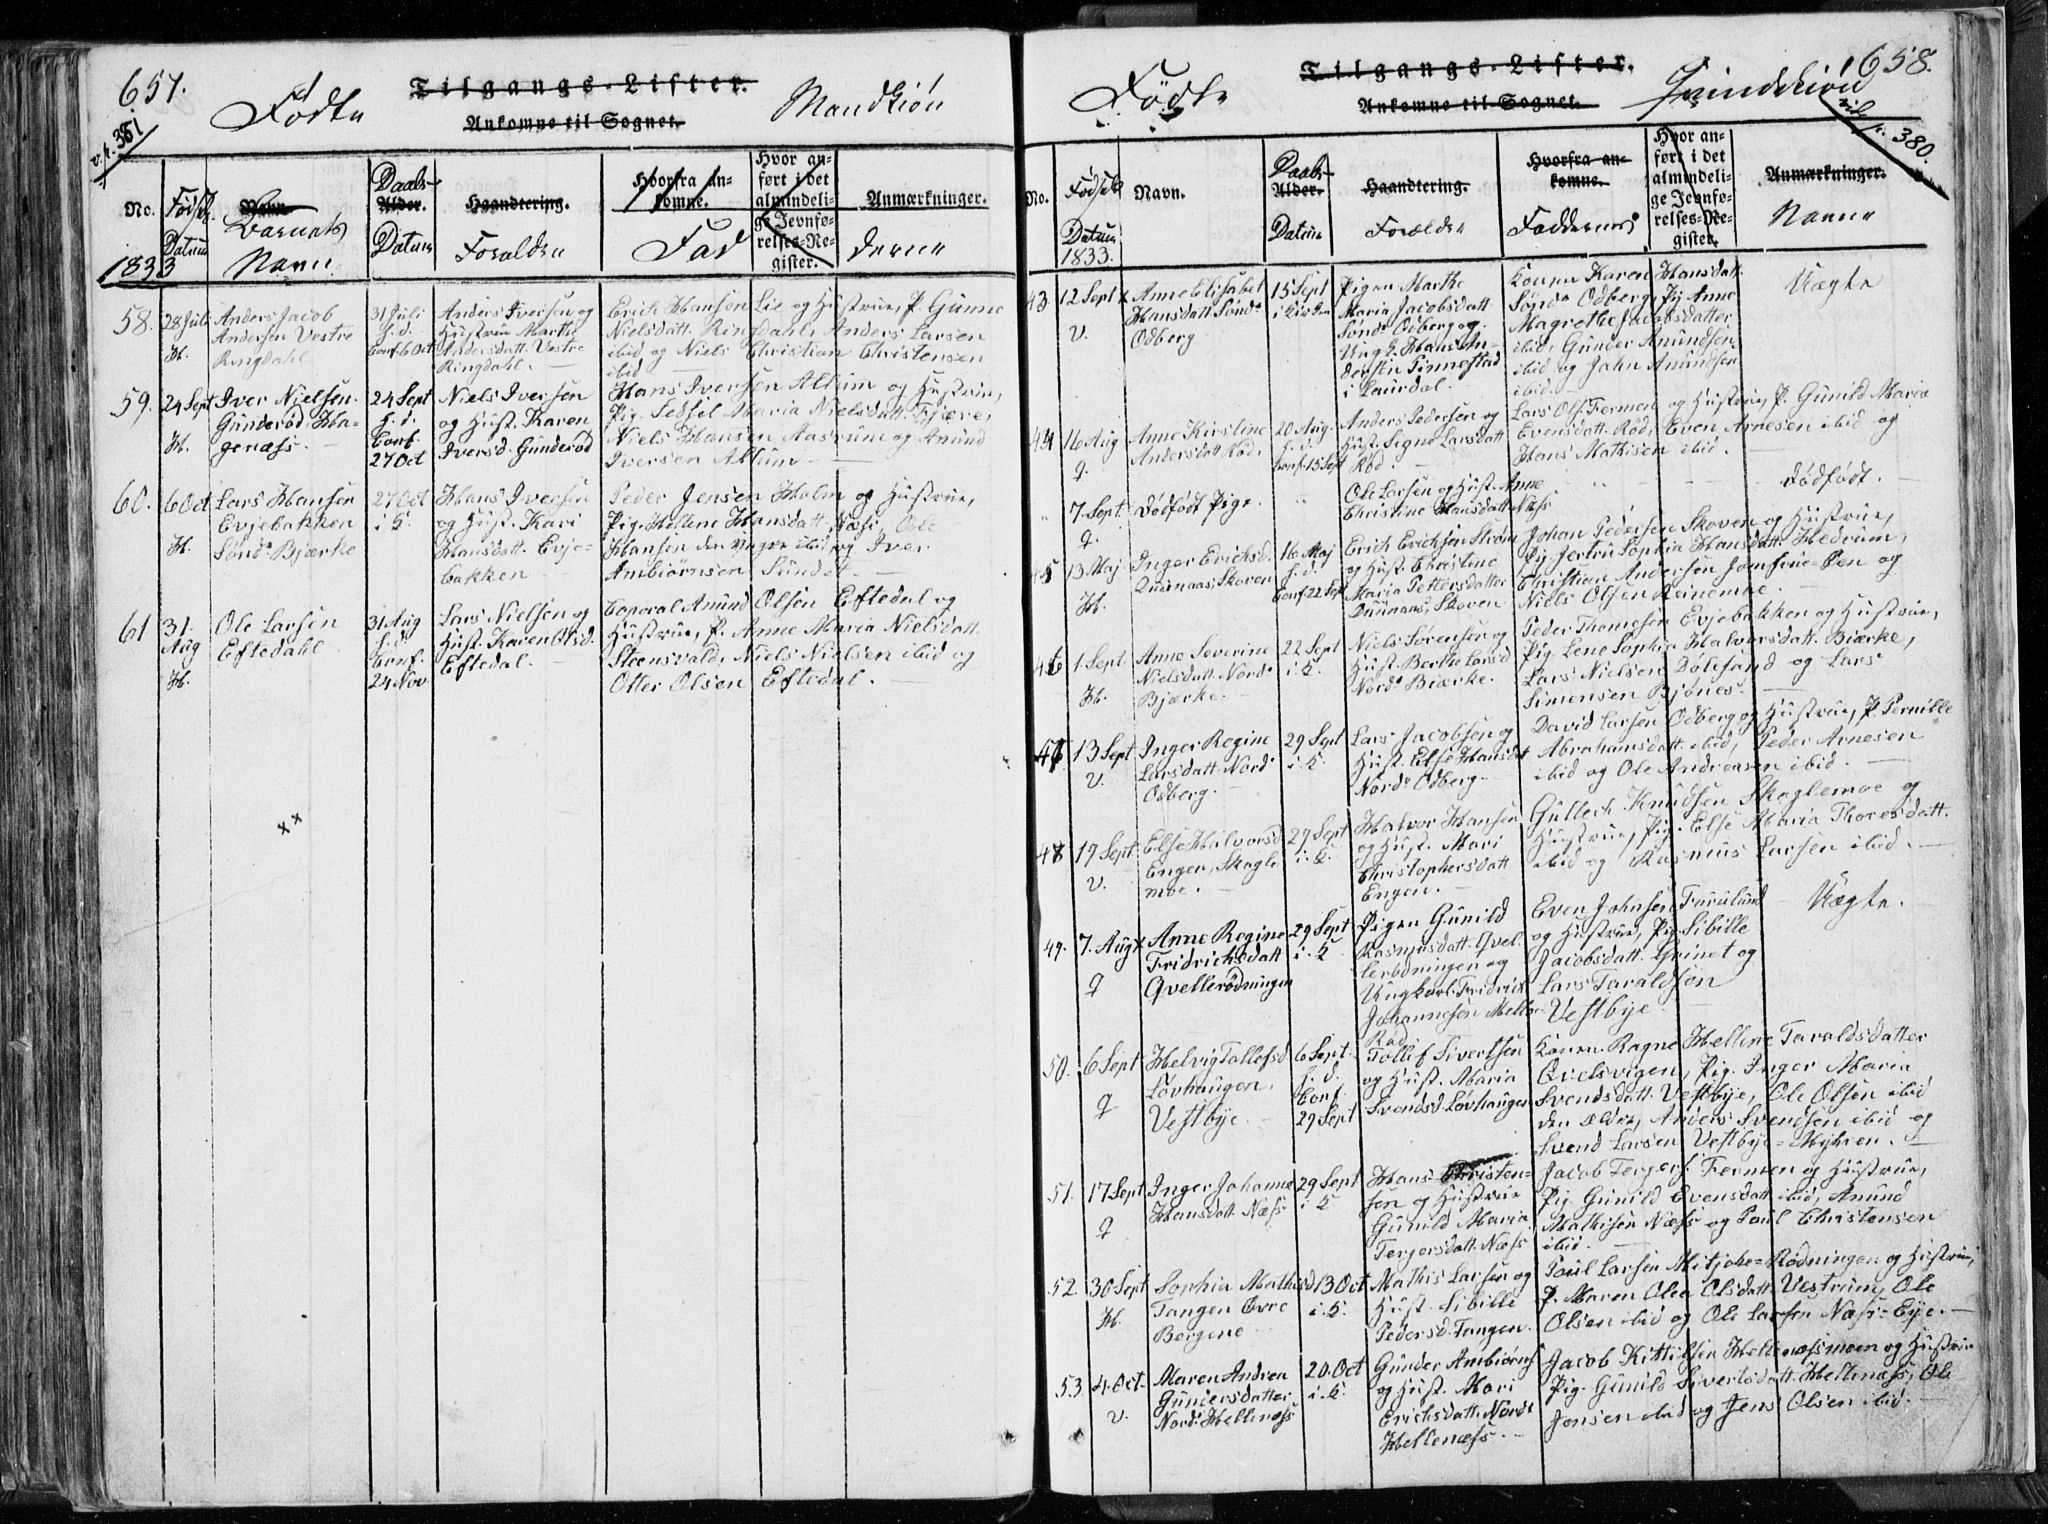 657.
v. p. 381
Fødte
Tilgangs-Lister.
Ankomne til Sognet.
Mandkiøn
No.
Fødsels
Datum
1833
Navn
Barnets
Navn
Daabs-
Alder.
Datum
Haandtering.
Forældre
Hvorfra an-
komne.
Fad
Hvor an-
ført i det
almindeli-
ge Jevnfø-
relses-Re-
gister.
Anmærkninger.
derne
58.
28 Juli
H.
Anders Jacob
Andersen Vestre
Ringdahl
31 Juli
h. d.
Conf. 6 Oct
Anders Iversen og
Hustrue Marthe
Andersdatt. Vestre
Ringdahl.
Erich Hansen Lie og Hustrue, P. Gunne
Nielsdatt. Ringdahl, Anders Larsen
ibid og Niels Christian Christensen
ibid
59.
24 Sept
H.
Iver Nielsen
Gunderød Ha-
genæss.
24 Sept
h. d.
Conf.
27 Oct
Niels Iversen
og Hust. Karen
Iversd. Gunderød
Hans Iversen Allum og Hustrue,
Pig. Sedsel Maria Nielsdatt. Fjære,
Niels Hansen Aasrum og Anund
Iversen Allum
60.
6 Oct
H.
Lars Hansen
Evjebakken
Sønd. Bjærke
27 Oct
i K.
Hans Iversen
og Hust. Kari
Hansdatt. Evje-
bakken
Peder Jensen Holm og Hustrue,
Pig. Hellene Hansdatt. Næss, Ole
Hansen den Yngre ibid og Iver
Ambiørnsen Sundet.
61
31.
Aug
H.
Ole Larsen
Eftedahl
31 Aug
h. d.
Conf.
24 Nov
Lars Nielsen og
Hust. Karen Olsd.
Eftedal.
Corporal Anund Olsen Eftedal og
Hustrue, P. Anne Maria Nielsdatt.
Steensvald, Niels Nielsen ibid og
Otter Olsen Eftedal.
658.
vide p. 380.
Fødte
Tilgangs-Lister.
Ankomne til Sognet.
Qvindekiøn
No.
Fødsels
Datum
1833.
Navn.
Daabs-
Alder.
Datum
Haandtering.
Forældre
Hvorfra an-
komne.
Faddernes
Hvor an-
ført i det
almindeli-
ge Jevnfø-
relses-Re-
gister.
Anmærkninger.
Navne
43
12 Sept
V.
Anne Elisabet
Hansdatt Sønd.
Odberg
15 Sept
i Kirken
Pigen Marthe
Maria Jacobsdatt
Sønd. Odberg og
Ungk. Hans An-
dersen Tinnestad
i Laurdal.
Konen Karen Hansdatt.
Sønd. Odberg, Pig Anne
Magrethe Jacobsdatter
ibid, Gunder Anundsen
ibid og Jahn Anundsen
ibid.
Uægte
44
16 Aug
q.
Anne Kirstine
Andersdatt Rød.
20 Aug.
h. d.
Conf. 15 Sept
Anders Pedersen og
Hust. Signe Larsdatt
Rød.
Lars Ols. Fermen og Hustrue, P. Gunild Maria
Evensdatt. Rød, Even Arnesen ibid og
Hans Mathisen ibid.
7 Sept.
q.
Dødfødt Pige.
Ole Larsen og Hust. Anne
Christine Hansdatt. Næss
Dødfødt.
45
13 Maj
H.
Inger Erichsd.
Duunaas, Skoven
16 Maj
h. d.
Conf. 22 Sept
Erich Erichsen Strøm
og Hust. Christine
Maria Pettersdatter
Duunaas, Skoven
Johan Pedersen Skoven og Hustrue,
Pig Jertru Sophia Hansdatt. Hedrum,
Christian Andersen Jomfrue-Øen og
Niels Olsen Reinemoe.
46
1 Sept.
H.
Anne Severine
Nielsdatt. Nord.
Bjærke.
22 Sept
i K.
Niels Sørensen og
Hust. Berthe Larsd
Nord. Biærke.
Peder Thomesen Evjebakken og Hustrue,
Pig. Lene Sophia Halvorsdatt. Biærke,
Lars Nielsen Dølesund og Lars
Simensen Bjønes.
47
13 Sept
V.
Inger Regine
Larsdatt. Nord.
Odberg.
29 Sept
i K.
Lars Jacobsen og
Hust. Else Hansdt
Nord. Odberg
David Larsen Odberg og Hustrue, P. Pernille
Abrahamsdatt. ibid, Peder Arnesen
ibid og Ole Andreasen ibid.
48
19 Sept.
V.
Else Halvorsd
Engen, Skagle
moe.
29 Sept
i K.
Halvor Hansen
og Hust. Mari
Christophersdatt
Engen.
Gullech Knudsen Skaglemoe og
Hustrue, Pig. Else Maria Thoresdatt.
ibid og Rasmus Larsen ibid.
49.
7. Aug
q
Anne Regine
Fridrichsdatt
Qvellerødningen
29 Sept
i K
Pigen Gunild
Rasmusdatt. Qvel-
lerødningen og
Ungkarl Fridrich
Johannesen Mellø-
Rød
Even Johnsen Furulund
og Hustrue, Pig. Sibille
Jacobsdatt. Grinet og
Lars Taraldsen
Vestbye.
Uægte.
50.
6 Sept
q
Helvig Tollefsd
Løvhaugen,
Vestbye.
6 Sept.
h. d.
Conf.
29 Sept
Tollif Sivertsen
og Hust. Maria
Svendsd. Løvhaugen
Konen Ragne Hellene Taraldsdatter
Qvelsvigen, Pig. Inger Maria
Svendsdatt. Vestbye, Ole Olsen ibid
den Ældre, Anders Svendsen ibid og
Svend Larsen Vestbye-Myhren.
51.
17 Sept
q
Inger Johanne
Hansdatt. Næss
29 Sept
i K
Hans Christen-
sen og Hustrue
Gunild Maria
Tergersdatt. Næss
Jacob Tergers. Fermen og Hustrue,
Pig Gunild Evensdatt ibid, Anund
Mathisen Næss og Poul Christensen
ibid.
52.
30 Sept
H.
Sophia Mathisd
Tangen Øvre
Bergene
13 Oct
i K.
Mathis Larsen og
Hust. Sibille
Pedersd. Tangen.
Poul Larsen Mitjobe-Rødningen og Hustrue,
P. Maren Olea Olsdatt. Vestrum, Ole
Olsen ibid og Ole Larsen Næss-Eye.
53.
4. Oct.
V.
Maren Andrea
Gundersdatter
Nord. Hellenæss
20. Oct
i K.
Gunder Ambiørns
og Hust. Mari
Erichsdatt. Nord.
Hellenæss.
Jacob Kittilsen Hellenæssmoen og Hustrue
Pig. Gunild Sivertsdatt. Hellenæss, Ole
Jensen ibid og Jens Olsen ibid.